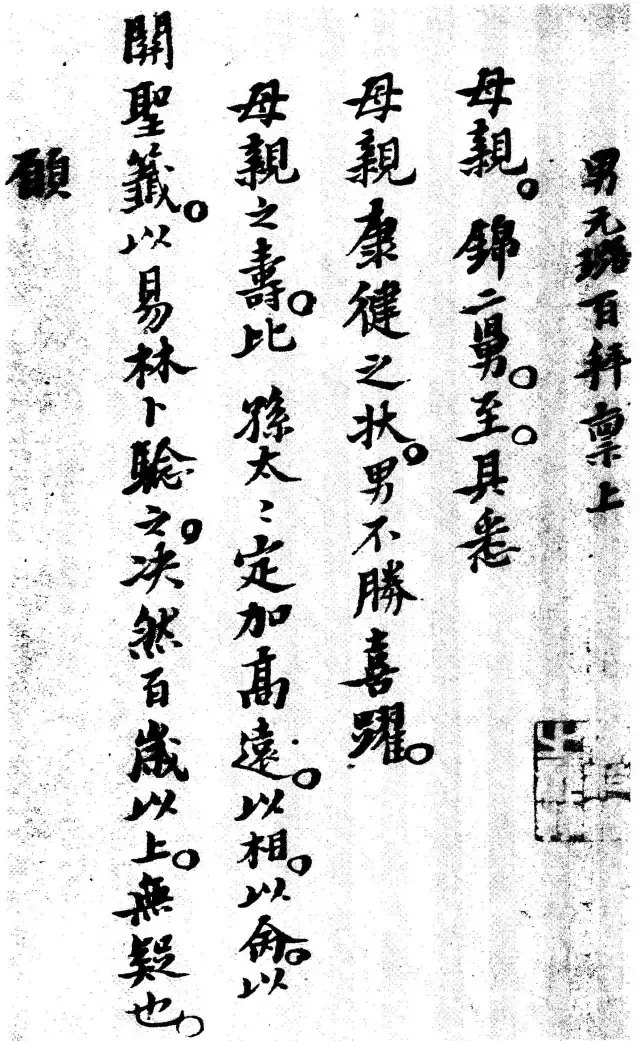 男元璐百拜禀上
母親。錦二舅。至。具悉
母親康徤之狀。男不勝喜躍。
母親之壽。比 孫太〻定加高遠。以相。以命。以
關聖籤。以易林卜驗之。决然百歲以上。無疑也。
願